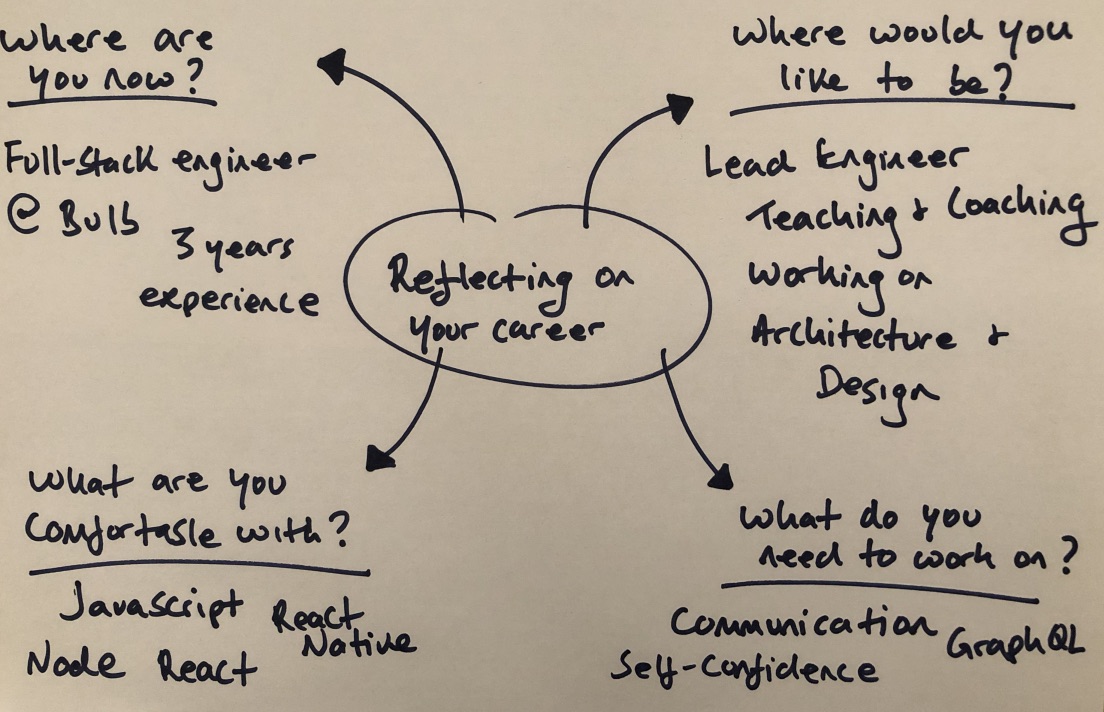 Where are
you now?
Full-Stack engineer
@ Bulb
3 years
experience
Where would you
like to be?
Lead Engineer
Teaching & Coaching
Working on
Architecture &
Design
Reflecting on
your career
What are you
Comfortable with?
Javascript
React
Native
Node React
What do you
need to work on?
Communication
GraphQL
Self-Confidence